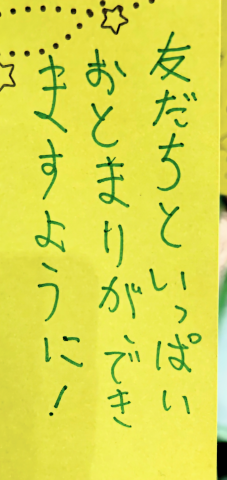 友だちといっぱい
おとまりができ
ますように!